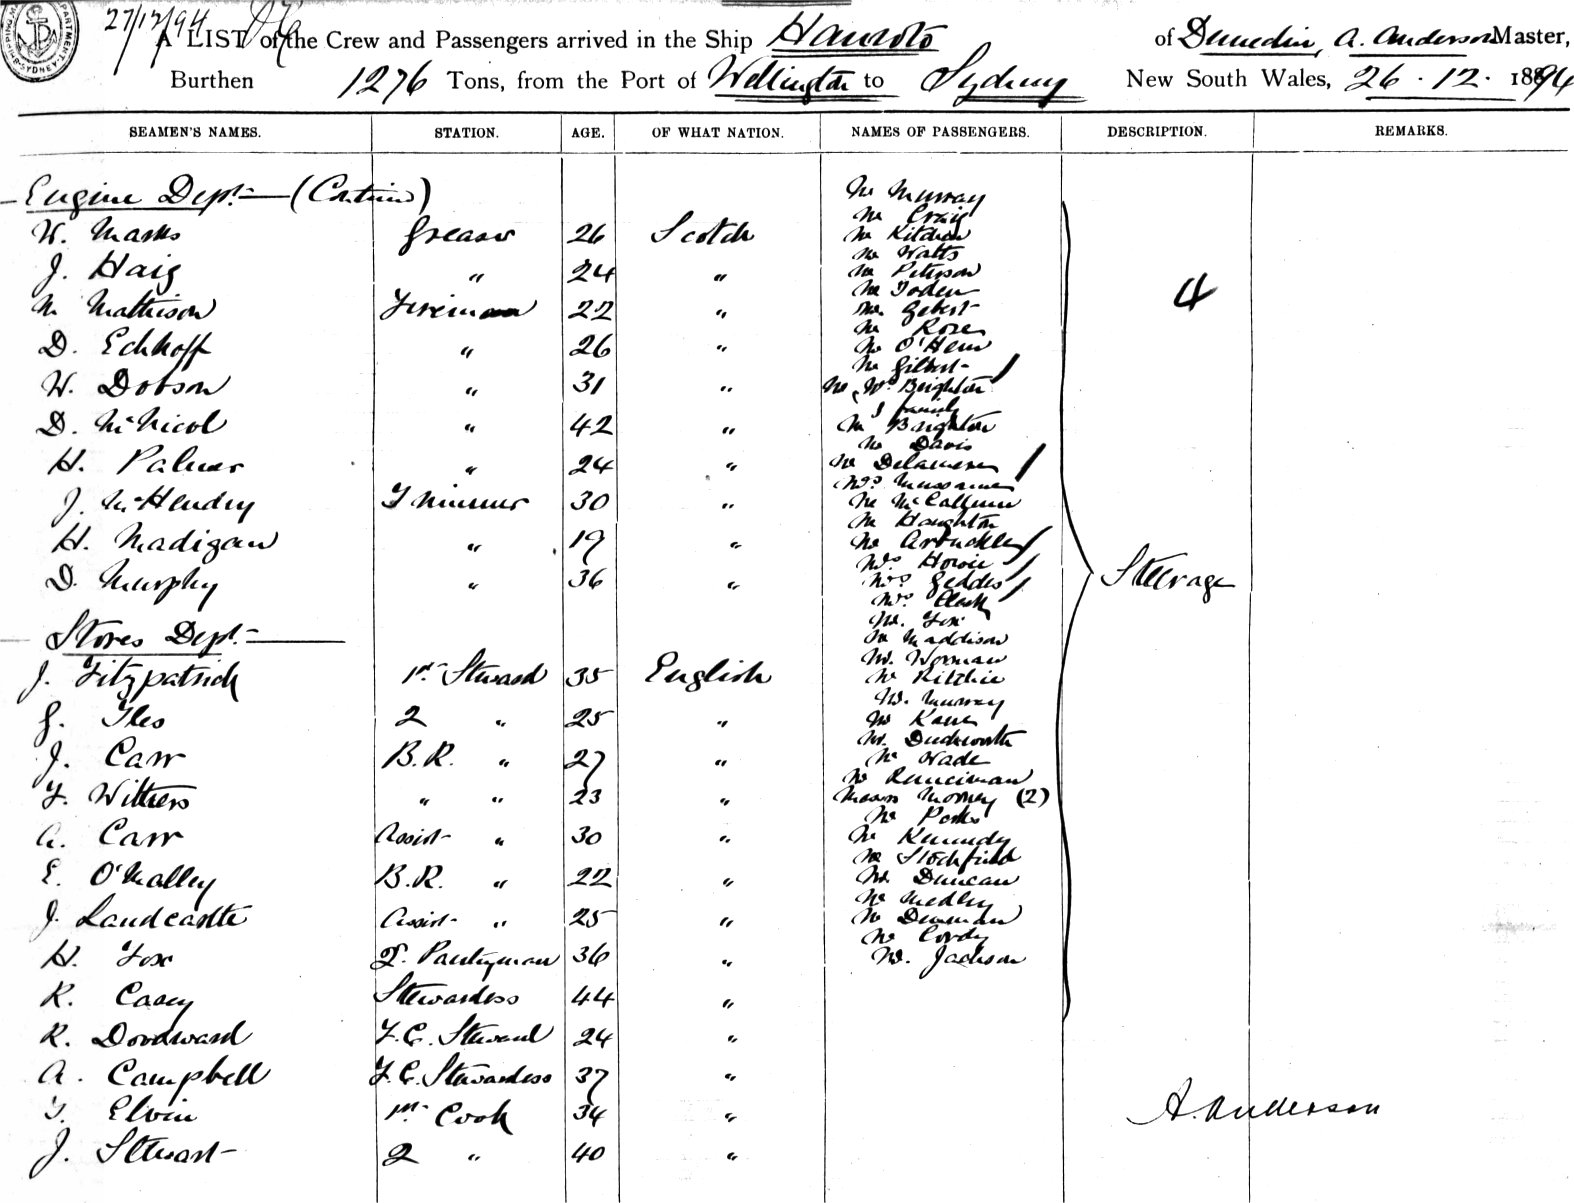 27/12/94
A LIST of the Crew and Passengers arrived in the Ship Hauroto of Dunedin, A. Anderson Master,
Burthen 1276 Tons, from the Port of Wellington to Sydney New South Wales, 26 . 12 . 1894
SEAMEN'S NAMES. STATION. AGE. OF WHAT NATION. NAMES OF PASSENGERS. DESCRIPTION. REMARKS.
Engine Dept. — (Continued)
W. Marks Greaser 26 Scotch
J. Haig " 24 "
M. Mathison Fireman 22 "
D. Eckhoff " 26 "
W. Dobson " 31 "
D. McNicol " 42 "
H. Palmer " 24 "
J. McHendry Trimmer 30 "
H. Madigan " 19 "
D. Murphy " 36 "
Stores Dept. —
J. Fitzpatrick 1st Steward 35 English
G. Iles 2 " 25 "
J. Carr B.R. " 27 "
F. Withers " " 23 "
A. Carr Assist " 30 "
E. O'Malley B.R. " 22 "
J. Landcastle Assist " 25 "
H. Fox Pantryman 36 "
R. Casey Stewardess 44 "
R. Doodward F.C. Steward 24 "
A. Campbell F.C. Stewardess 37 "
T. Elvin 1st Cook 34 "
J. Stewart 2 " 40 "
Mr Murray
Mr Craig
Mr Kitchen
Mr Watts
Mr Peterson
Mr Foden
Mr Gebert
Mr Rose
Mr O'Hern
Mr Gilbert
Mr Mrs Beighton
& family
Mr Beighton
Mr Davis
Mr Delamere
Mrs
Mr McCallum
Mr Haughton
Mr Arbuckle
Mrs Howie
Mrs Geddes
Mrs Clark
Mr. Fox
Mr Maddison
Mr. Worman
Mr Ritchie
Mr. Murray
Mr Kane
Mr. Duckworth
Mr Wade
Mr Runciman
Messrs Morney (2)
Mr Parks
Mr Kennedy
Mr Stockfield
Mr Duncan
Mr Medley
Mr Denman
Mr Cordy
Mr. Jackson
4
Steerage
A. Anderson